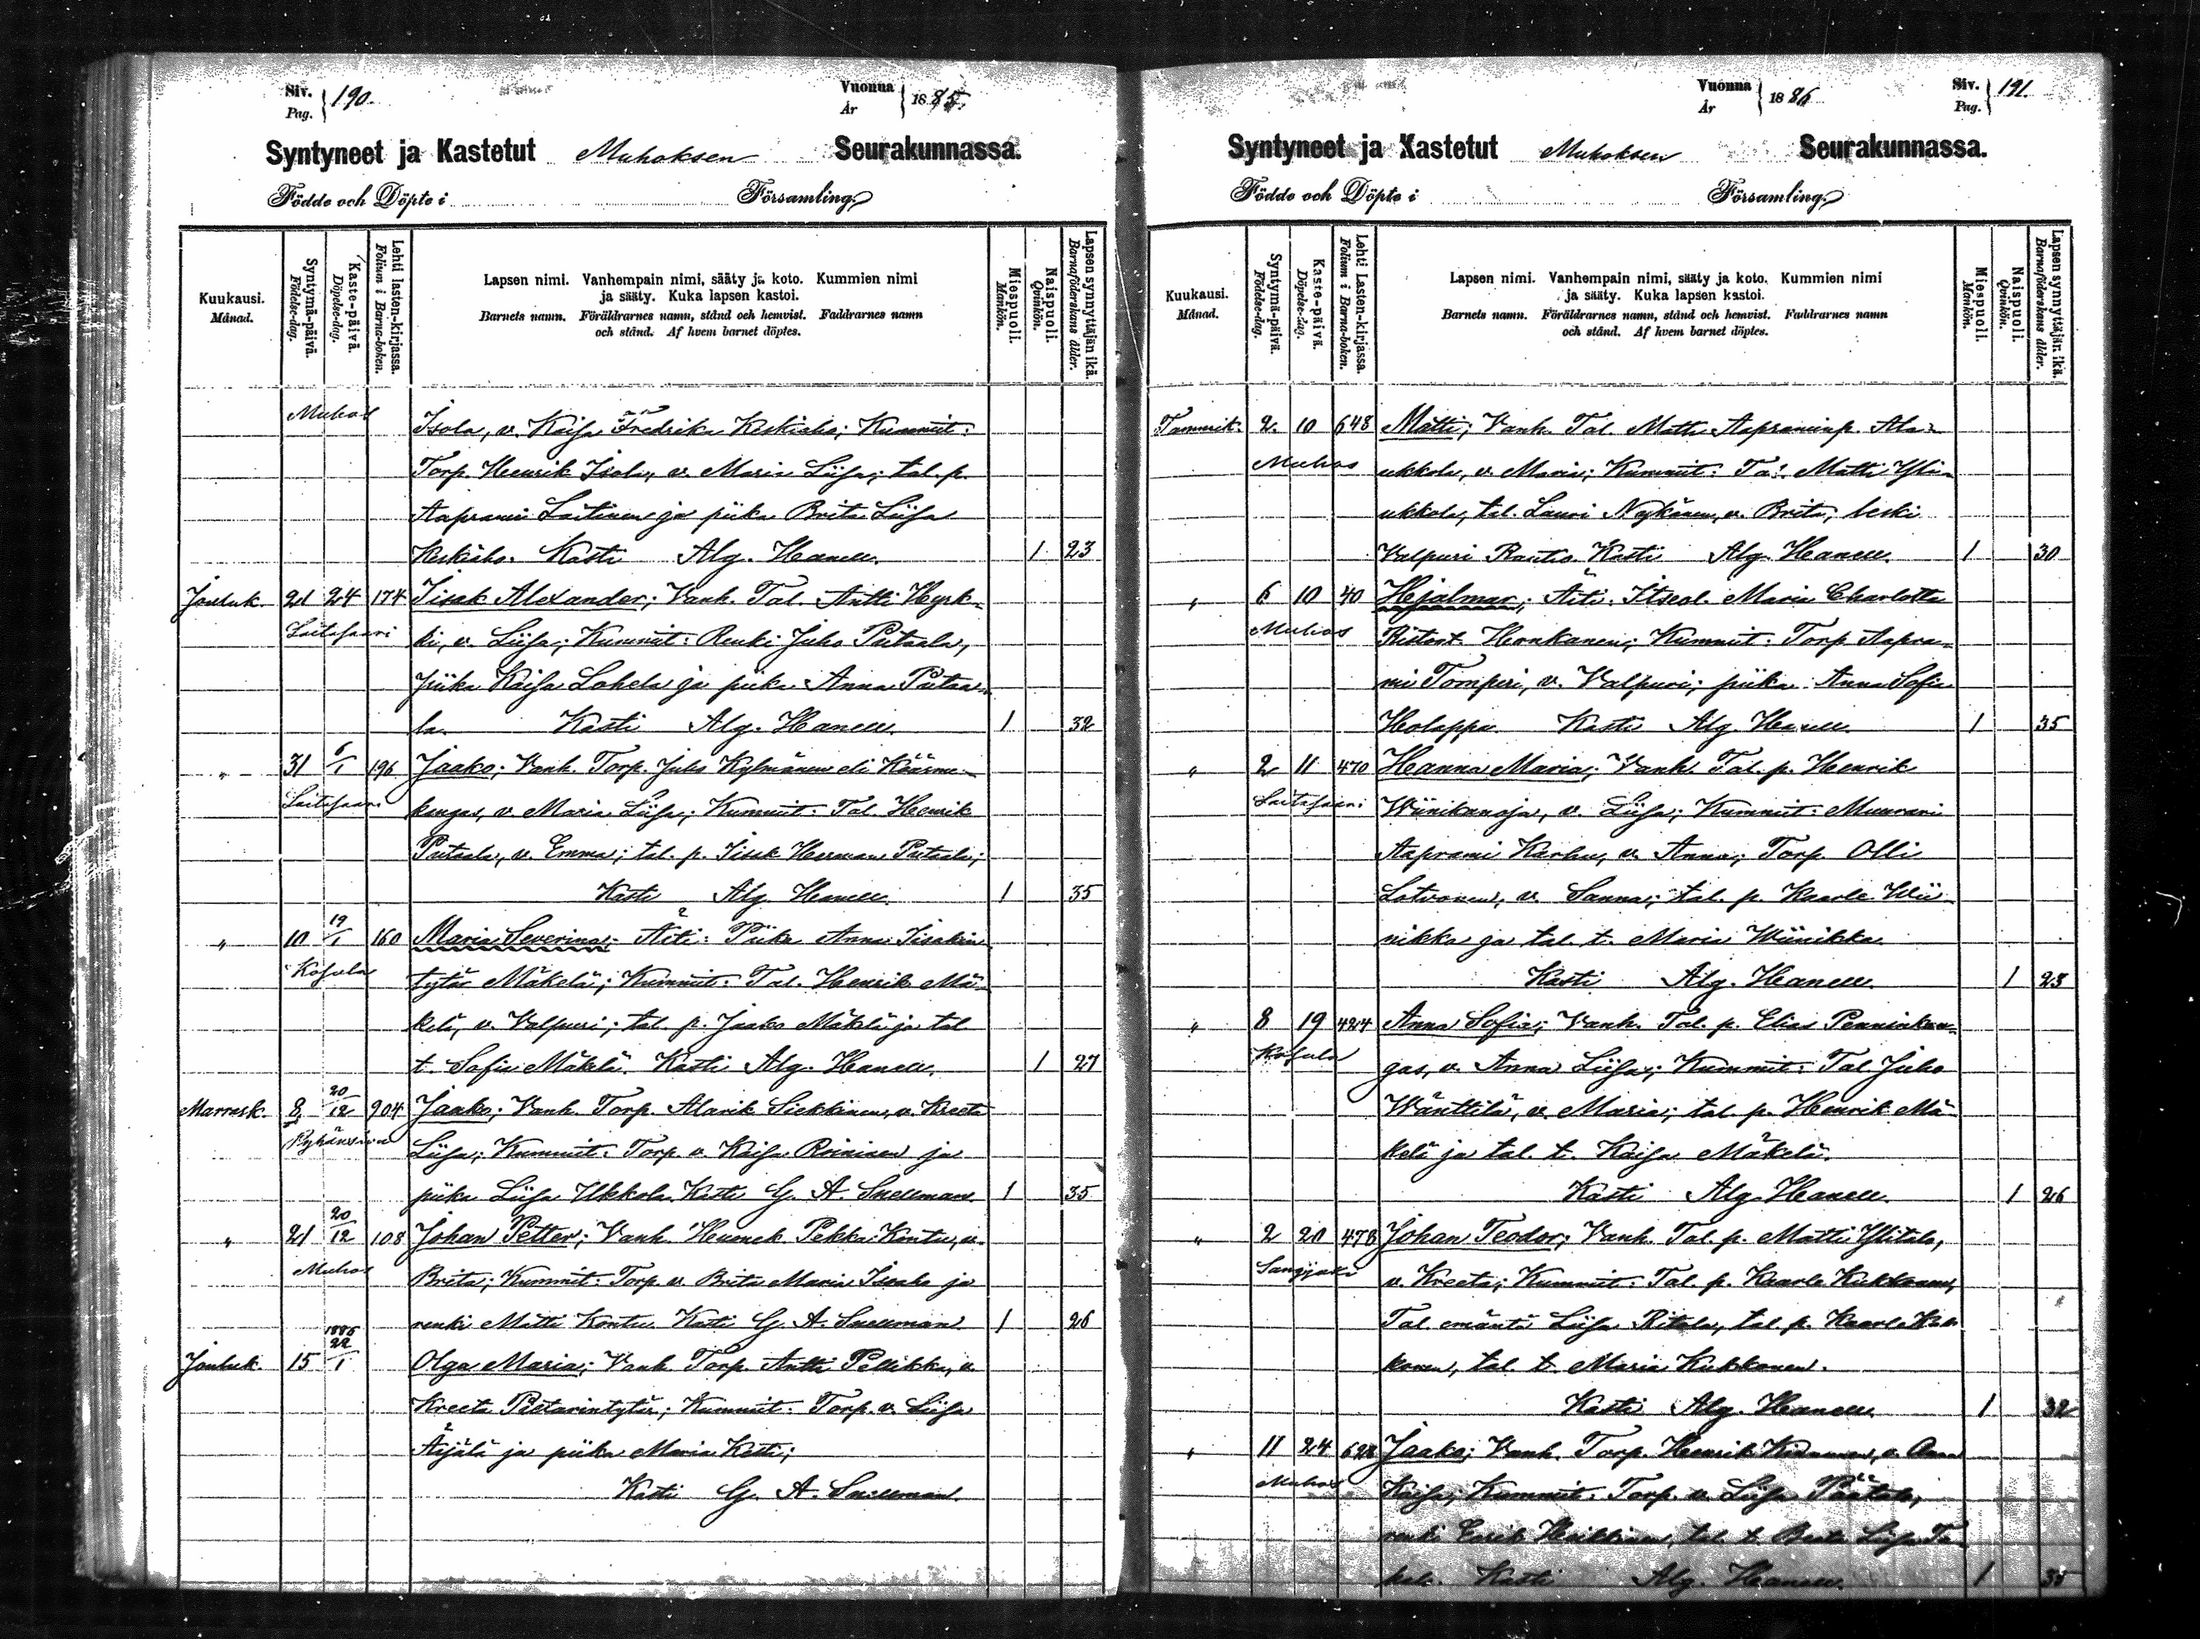 Siv. Pag. 190.
Vuonna År 1885.
Syntyneet ja Kastetut Muhoksen Seurakunnassa.
Födde och Döpte i Församling.
Kuukausi. Månad.
Syntymä-päivä. Födelse-dag.
Kaste-päivä. Döpelse-dag.
Lehti lasten-kirjassa. Folium i Barna-boken.
Lapsen nimi. Vanhempain nimi, sääty ja koto. Kummien nimi
ja sääty. Kuka lapsen kastoi.
Barnets namn. Föräldrarnes namn, stånd och hemvist. Faddrarnes namn
och stånd. Af hvem barnet döptes.
Miespuoli. Mankön.
Naispuoli. Qvinkön.
Lapsen synnyttäjän ikä. Barnaföderskans ålder.
Muhos Isola, v. Kaisa Fredrika Keskiaho; Kummit:
Torp. Henrik Isola, v. Maria Liisa; tal. p.
Aaprami Laitinen ja piika Brita Liisa
Keskiaho. Kasti Alg. Hanell. 1 23
Jouluk. 21 24 174 Iisak Alexander; Vanh. Tal. Antti Hyrk-
Laitasaari ki, v. Liisa; Kummit: Renki Juho Pitaala,
piika Kaisa Lohela ja piika Anna Pitaa-
la. Kasti Alg. Hanell. 1 32
„ 31 6/1 196 Jaako; Vanh. Torp. Juho Kylmänen eli Käärme-
Laitasaari kangas, v. Maria Liisa; Kummit: Tal. Henrik
Pitaala, v. Emma; tal. p. Iisak Herman Pitaala;
Kasti Alg. Hanell. 1 35
„ 10 19/1 160 Maria Severina; Äiti: Piika Anna Iisakin
Kosula tytär Mäkelä; Kummit: Tal. Henrik Mä-
kelä, v. Valpuri; tal. p. Jaako Mäkelä ja tal.
t. Sofia Mäkelä. Kasti Alg. Hanell. 1 27
Marrask. 8 20/12 204 Jaako; Vanh. Torp. Alarik Siekkinen, v. Kreeta
Liisa; Kummit: Torp. v. Kaisa Roininen ja
piika Liisa Ukkola. Kasti G. A. Snellman 1 35
„ 21 20/12 108 Johan Petter; Vanh. Huonek. Pekka Kontu, v.
Muhos Brita; Kummit: Torp. v. Brita Maria Isoaho ja
renki Matti Kontu. Kasti G. A. Snellman 1 26
Jouluk. 15 1886 22/1 Olga Maria; Vanh. Torp. Antti Pellikka, v.
Kreeta Pietarintytär; Kummit: Torp. v. Liisa
Äijälä ja piika Maria Ketti;
Kasti G. A. Snellman.
Siv. Pag. 191.
Vuonna År 1886
Syntyneet ja Kastetut Muhoksen Seurakunnassa.
Födde och Döpte i Församling.
Kuukausi. Månad.
Syntymä-päivä. Födelse-dag.
Kaste-päivä. Döpelse-dag.
Lehti Lasten-kirjassa. Folium i Barna-boken.
Lapsen nimi. Vanhempain nimi, sääty ja koto. Kummien nimi
ja sääty. Kuka lapsen kastoi.
Barnets namn. Föräldrarnes namn, stånd och hemvist. Faddrarnes namn
och stånd. Af hvem barnet döptes.
Miespuoli. Mankön.
Naispuoli. Qvinkön.
Lapsen synnyttäjän ikä. Barnaföderskans ålder.
Tammik. 2 10 648 Matti; Vanh. Tal. Matti Aapraminp. Ala-
Muhos ukkola, v. Maria; Kummit: Tal. Matti Yli-
ukkola, tal. Lauri Nykänen, v. Brita, leski
Valpuri Rautio. Kasti Alg. Hanell. 1 30
„ 6 10 40 Hejalmar; Äiti: Itseol. Maria Charlotta
Muhos Ristont. Honkanen; Kummit: Torp. Aapra-
mi Tomperi, v. Valpuri; piika Anna Sofia
Holappa. Kasti Alg. Hanell. 1 35
„ 2 11 470 Hanna Maria; Vanh. Tal. p. Henrik
Laitasaari Wiinikanoja, v. Liisa; Kummit: Muurari
Aaprami Karhu, v. Anna; Torp. Olli
Lotvonen, v. Sanna; tal. p. Kaarle Wii-
nikka ja tal. t. Maria Wiinikka.
Kasti Alg. Hanell. 1 23
„ 8 19 424 Anna Sofia; Vanh. Tal. p. Elias Penninkan-
Kosula gas, v. Anna Liisa; Kummit: Tal. Juho
Wänttilä, v. Maria; tal. p. Henrik Mä-
kelä ja tal. t. Kaisa Mäkelä.
Kasti Alg. Hanell. 1 26
„ 2 20 478 Johan Teodor; Vanh. Tal. p. Matti Ylitalo,
Sanginjoki v. Kreeta; Kummit: Tal. p. Kaarle Kukkonen,
Tal. emäntä Liisa Ritola, tal. p. Kaarle Kuk-
konen, tal. t. Maria Kukkonen.
Kasti Alg. Hanell. 1 32
„ 11 24 628 Jaako; Vanh. Torp. Henrik v. Anna
Muhos Kaisa; Kummit: Torp. v. Liisa Päätalo,
renki Eerik Heikkinen, tal. t. Brita Liisa
Kasti Alg. Hanell. 1 35